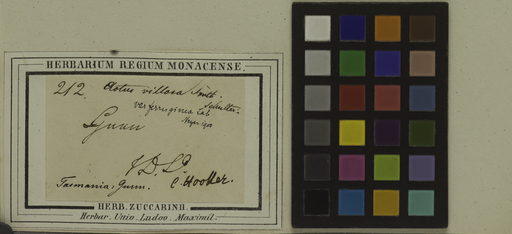 HERBARIUM REGIUM MONACENSE.
212. Aotus villosa Smith.
var ferruginea Lab
Gunn
V.D.L.
Tasmania: Gunn. C. Hooker.
HERB. ZUCCARINII.
Herbar. Univ. Ludov. Maximil.